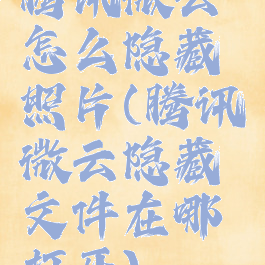 腾讯微云
怎么隐藏
照片(腾讯
微云隐藏
文件在哪
打开)